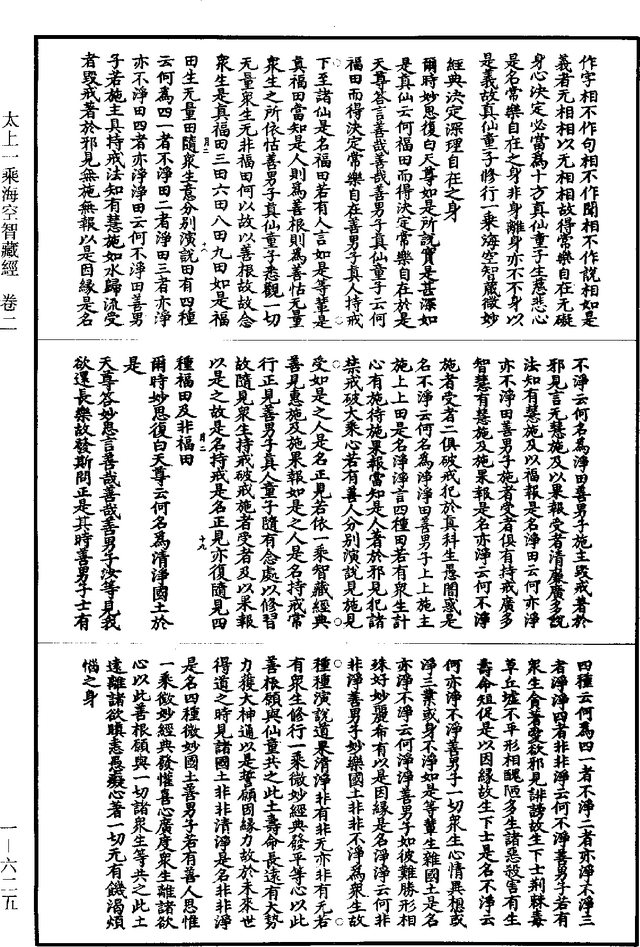 太上一乘海空智藏經 卷二
一—六二五
作字相不作句相不作聞相不作說相如是
義者无相相以无相相故得常樂自在无礙
身心決定必當為十方真仙童子生慈悲心
是名常樂自在之身非身離身亦不不身以
是義故真仙童子修行一乘海空智藏微妙
經典決定深理自在之身
爾時妙思復白天尊如是所說實是甚深如
是真仙云何福田而得決定常樂自在於是
天尊答言善哉善哉善男子真仙童子云何
福田而得決定常樂自在善男子真人持戒
下至諸仙是名福田若有人言如是等輩是
真福田當知是人則為善根則為善怙无量
眾生之所依怙善男子真仙童子悉觀一切
无量眾生无非福田何以故以善根故故念
眾生是真福田三田六田八田九田如是福
田生无量田隨眾生意分別演說田有四種
云何為四一者不淨田二者淨田三者亦淨
亦不淨田四者亦淨淨田云何不淨田善男
子若施主具持戒法知有慧施如水歸流受
者毀戒著於邪見無施無報以是因緣是名
不淨云何名為淨田善男子施主毀戒著於
邪見言无慧施及以果報受者清廉廣多說
法知有慧施及以福報是名淨田云何亦淨
亦不淨田善男子施者受者俱有持戒廣多
智慧有慧施及施果報是名亦淨云何不淨
施者受者二俱破戒犯於真科生愚闇惑是
名不淨云何名為淨淨田善男子上上施主
施上上田是名淨淨言四種田若有眾生計
心有施待施果報當知是人著於邪見犯諸
禁戒破大乘心若有善人分別演說見施見
受如是之人是名正見若依一乘智藏經典
善見惠施及施果報如是之人是名持戒常
行正見善男子真人童子隨有念處以修習
故隨見眾生持戒破戒施者受者及以果報
以是之故是名持戒是名正見亦復隨見四
種福田及非福田
爾時妙思復白天尊云何名為清淨國土於
是
天尊答妙思言善哉善哉善男子汝等見我
欲還長樂故發斯問正是其時善男子士有
四種云何為四一者不淨二者亦淨不淨三
者淨淨四者非非淨云何不淨善男子若有
眾生貪著愛欲邪見誹謗故生下士荊棘毒
草丘墟不平形相醜陋多生諸惡殺害有生
壽命短促是以因緣故生下士是名不淨云
何亦淨不淨善男子一切眾生心情異根或
淨三業或身不淨如是等輩生雜國土是名
亦淨不淨云何淨淨善男子如彼難勝形相
殊好妙麗希有以是因緣是名淨淨云何非
非淨善男子妙樂國土非非不淨為眾生故
種種演說道果清淨非有非无亦非有无若
有眾生修行一乘微妙經典發平等心以此
善根願與仙童共之此土壽命長遠有大勢
力獲大神通以是誓願因緣力故於未來世
得道之時見諸國土非非清淨是名非非淨
是名四種微妙國土善男子若有善人思惟
一乘微妙經典發懽喜心廣度眾生離諸欲
心以此善根願與一切諸眾生等共之此土
遠離諸欲瞋恚愚癡心著一切无有饑渴煩
惱之身